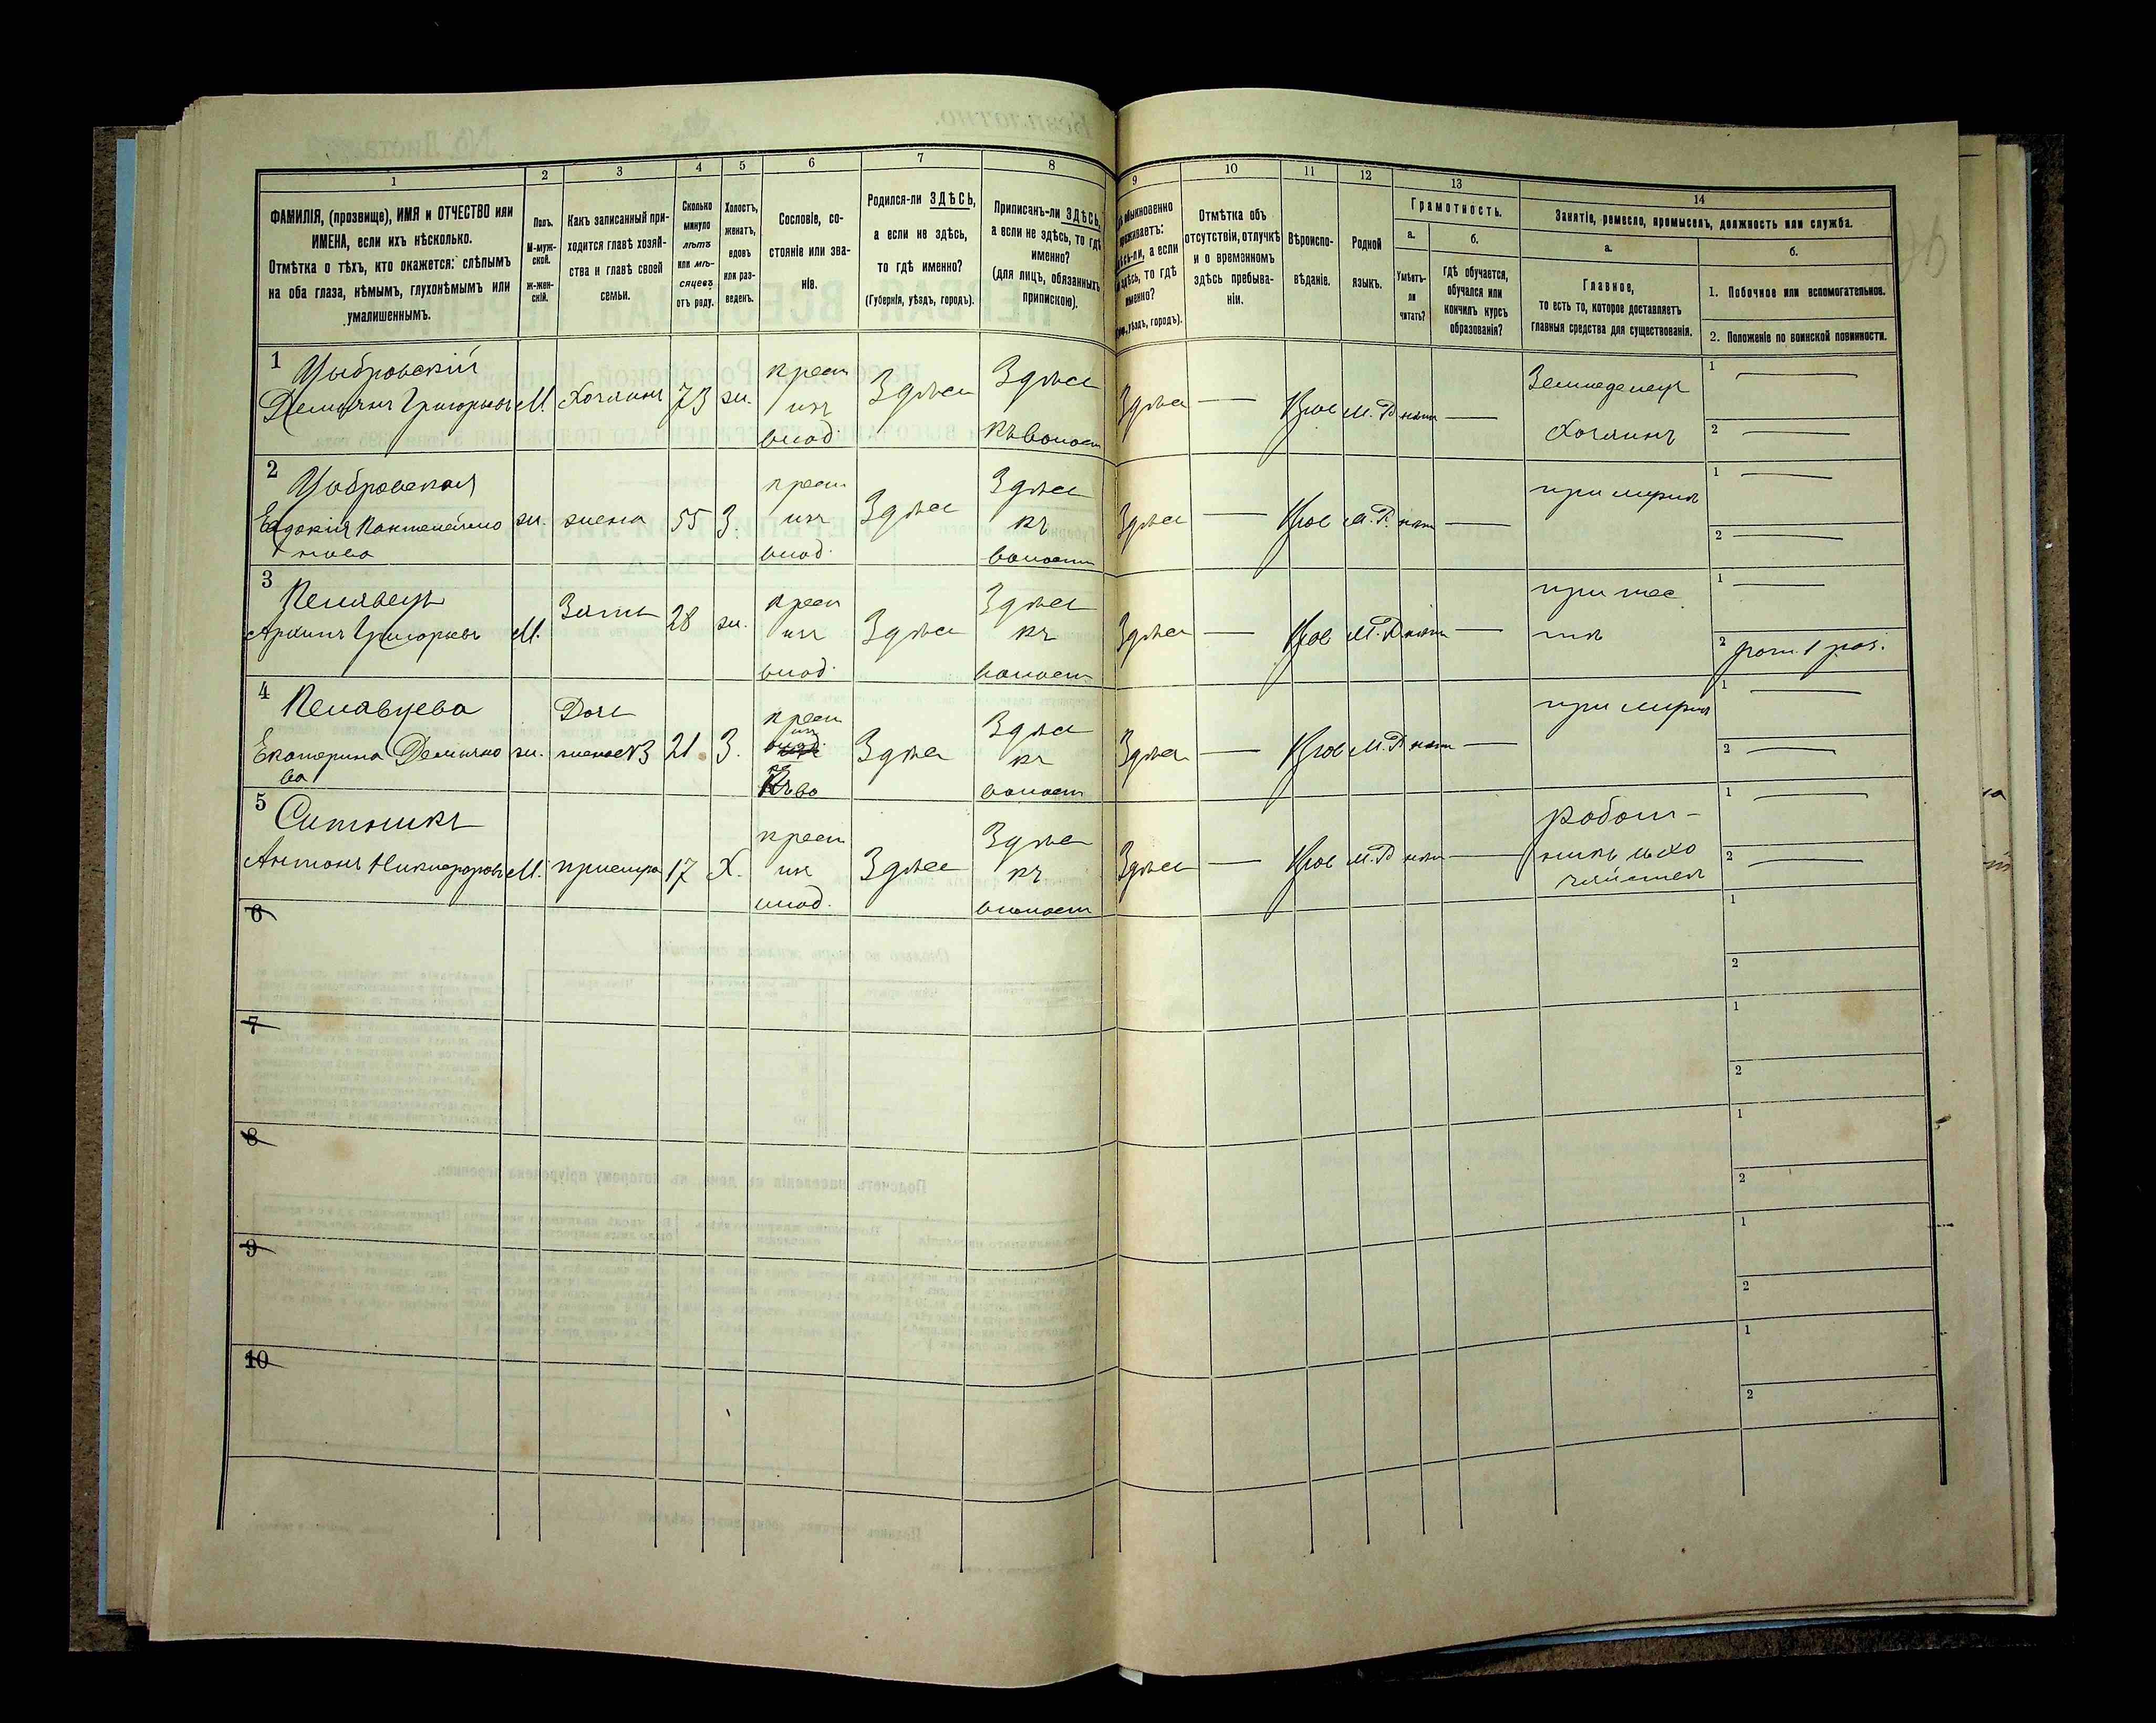 1
2
3
4
5
6
7
8
9
10
11
12
13
14
ФАМИЛІЯ, (прозвище), ИМЯ и ОТЧЕСТВО или
ИМЕНА, если ихъ нѣсколько.
Отмѣтка о тѣхъ, кто окажется: слѣпымъ
на оба глаза, нѣмымъ, глухонѣмымъ или
умалишеннымъ.
Полъ.
М-муж-
ской.
ж-жен-
скій.
Какъ записанный при-
ходится главѣ хозяй-
ства и главѣ своей
семьи.
Сколько
минуло
лѣтъ
или мѣ-
сяцевъ
отъ роду.
Холостъ,
женатъ,
вдовъ
или раз-
веденъ.
Сословіе, со-
стояніе или зва-
ніе.
Родился-ли ЗДѢСЬ,
а если не здѣсь,
то гдѣ именно?
(Губернія, уѣздъ, городъ).
Приписанъ-ли ЗДѢСЬ,
а если не здѣсь, то гдѣ
именно?
(для лицъ, обязанныхъ
припискою).
обыкновенно
а если
здѣсь, то гдѣ
именно?
уѣздъ, городъ).
Отмѣтка объ
отсутствіи, отлучкѣ
и о временномъ
здѣсь пребыва-
ніи.
Вѣроиспо-
вѣданіе.
Родной
языкъ.
Грамотность.
а.
Умѣетъ-
ли
читать?
б.
гдѣ обучается,
обучался или
кончилъ курсъ
образованія?
Занятіе, ремесло, промыселъ, должность или служба.
а.
Главное,
то есть то, которое доставляетъ
главныя средства для существованія.
б.
1. Побочное или вспомогательное.
2. Положеніе по воинской повинности.
1
Цыбровскій
Демьянъ Григорьевъ М. Хозяинъ 73 ж.
крест
изъ
влад.
Здѣсь
Здѣсь
къ волост
Здѣсь — Прав М.Р. нѣтъ —
Земледелец
Хозяинъ
1 —
2 —
2
Цыбровская
Евдокія Пантелеймо
нова
ж. жена 55 З.
крест
изъ
влад.
Здѣсь
Здѣсь
къ
волости
Здѣсь — Прав М.Р. нѣтъ —
при мужѣ
1 —
2 —
3
Архипъ Григорьевъ М. Зять 28 ж.
крест
изъ
влад.
Здѣсь
Здѣсь
къ
волост
Здѣсь — Прав М.Р. нѣтъ —
при тес
тѣ
1 —
2 рат. 1 раз.
4
Екатерина Демьяно
ва
ж.
Дочь
жена №3 21 З.
крест
изъ
Здѣсь
Здѣсь
къ
волост
Здѣсь — Прав М.Р. нѣтъ —
при мужѣ
1 —
2 —
5
Ситникъ
Антонъ Никифоровъ М. 17 Х.
крест
изъ
влад.
Здѣсь
Здѣсь
къ
волост
Здѣсь — Прав М.Р. нѣтъ —
работ-
никъ
1 —
2 —
6
1
2
7
1
2
8
1
2
9
1
2
10
1
2